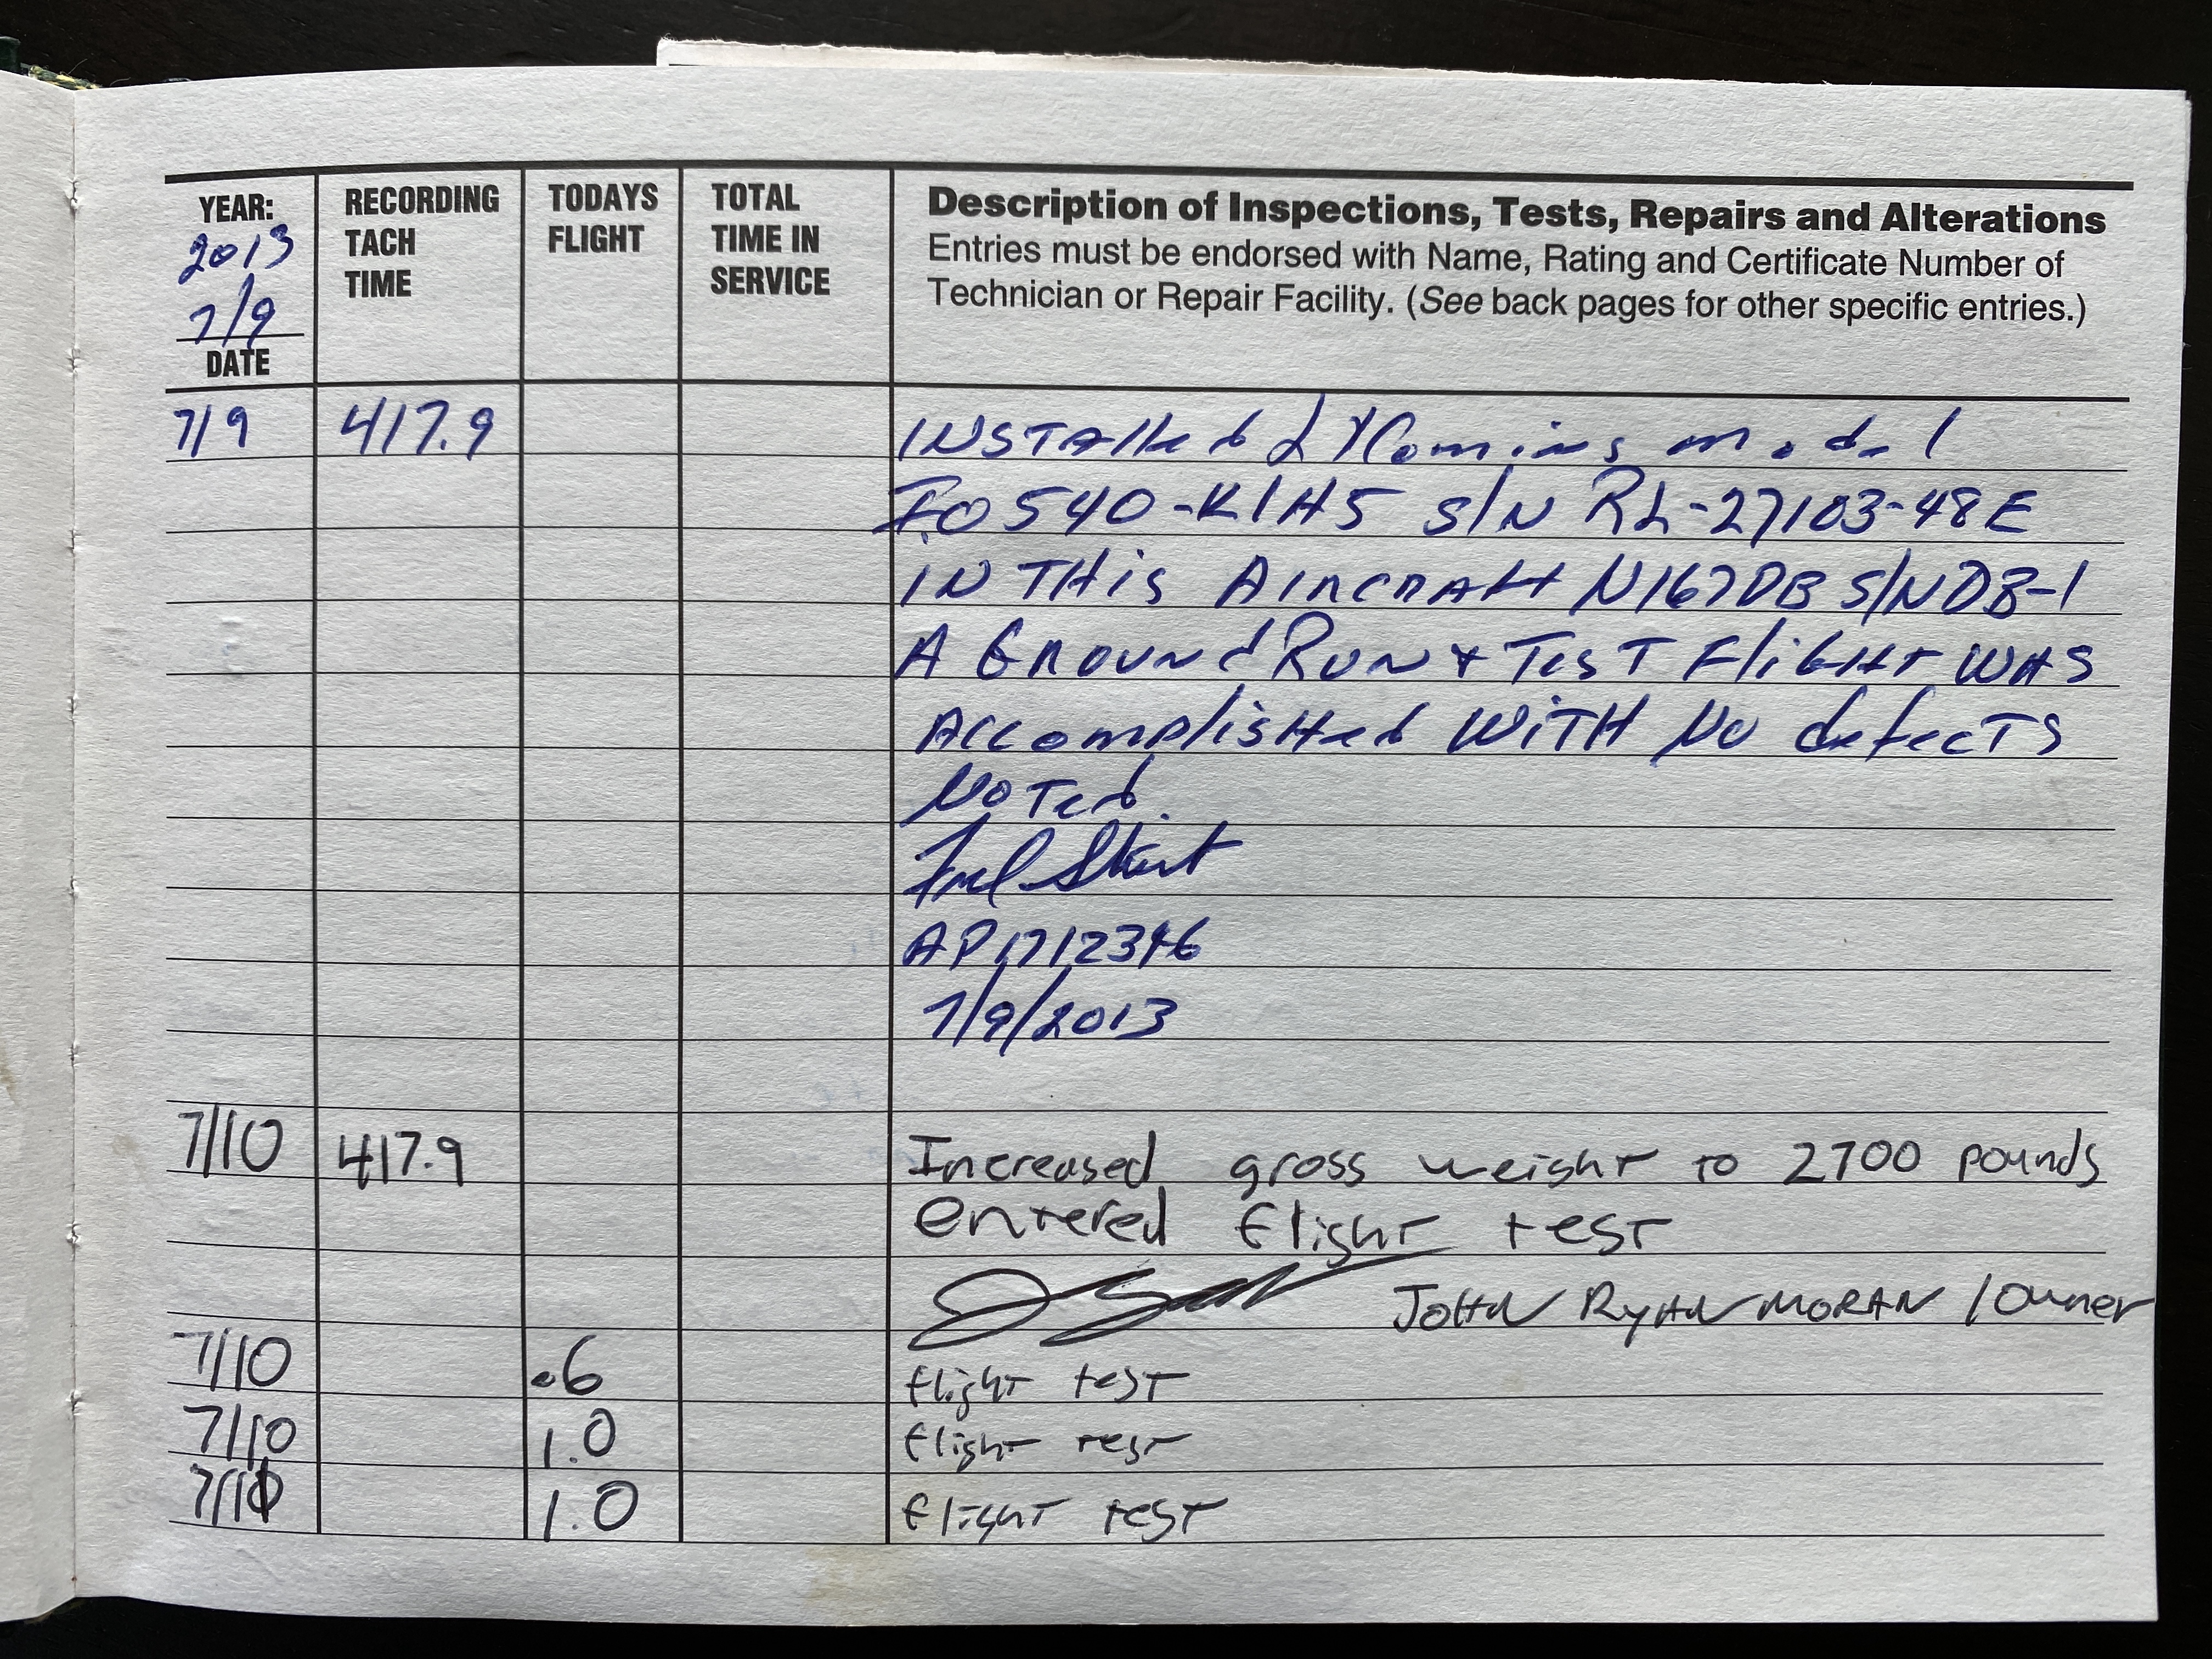 YEAR: 2013 7/9 DATE
RECORDING TACH TIME
TODAYS FLIGHT
TOTAL TIME IN SERVICE
Description of Inspections, Tests, Repairs and Alterations
Entries must be endorsed with Name, Rating and Certificate Number of
Technician or Repair Facility. (See back pages for other specific entries.)
7/9 417.9 INSTAlled LYComing model
IO540-K1H5 S/N RL-27103-48E
IN THis AircrAft N167DB S/N DB-1
A Ground Run & TesT FliGHT WAS
Accomplished WiTH No defecTs
NoTed.
AP 1712346
7/9/2013
7/10 417.9 Increased gross weight to 2700 pounds
entered flight test
JOHN RYAN MORAN / Owner
7/10 .6 flight test
7/10 1.0 flight test
7/11 1.0 flight test